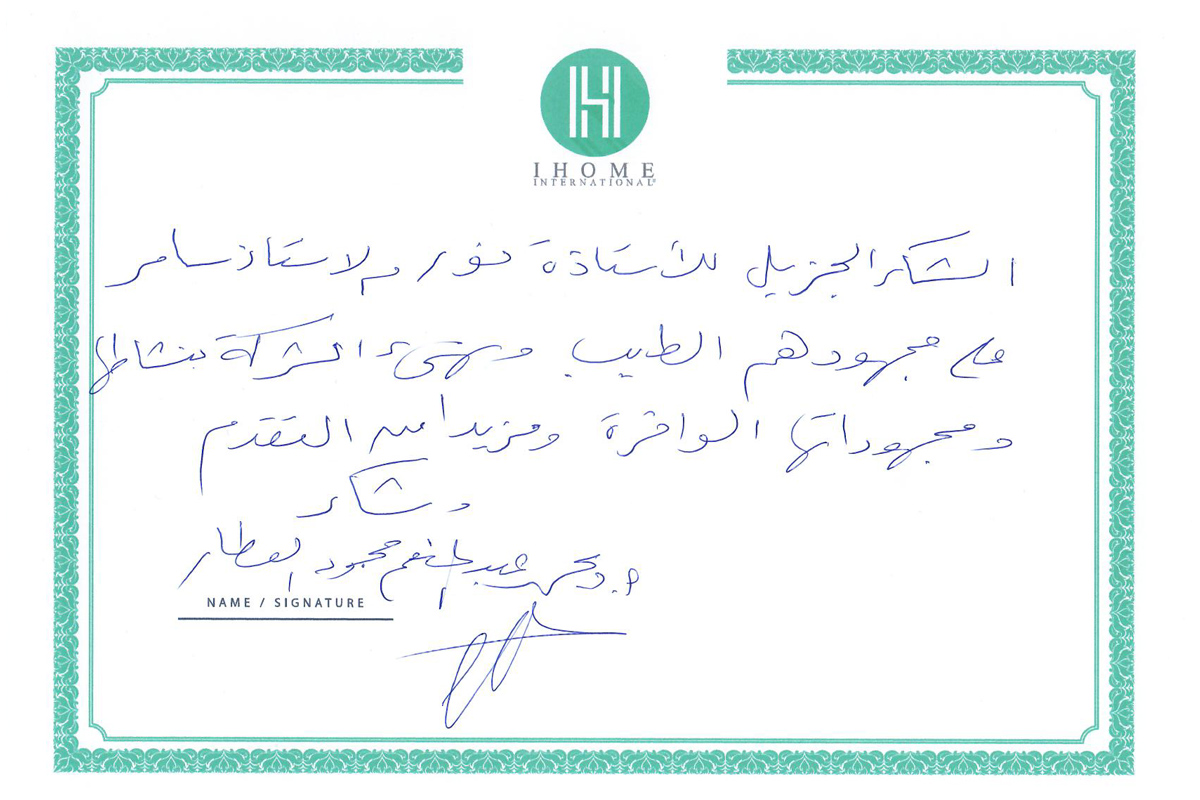 IHOME
INTERNATIONAL®
الشكر الجزيل للأستاذة نور و لاستاذ سامر
على مجهودهم الطيب ونهنىء الشركة بنشاطها
ومجهوداتها الوافرة ومزيدا من التقدم
وشكر
م. عبد المنعم محمود العطار
NAME / SIGNATURE